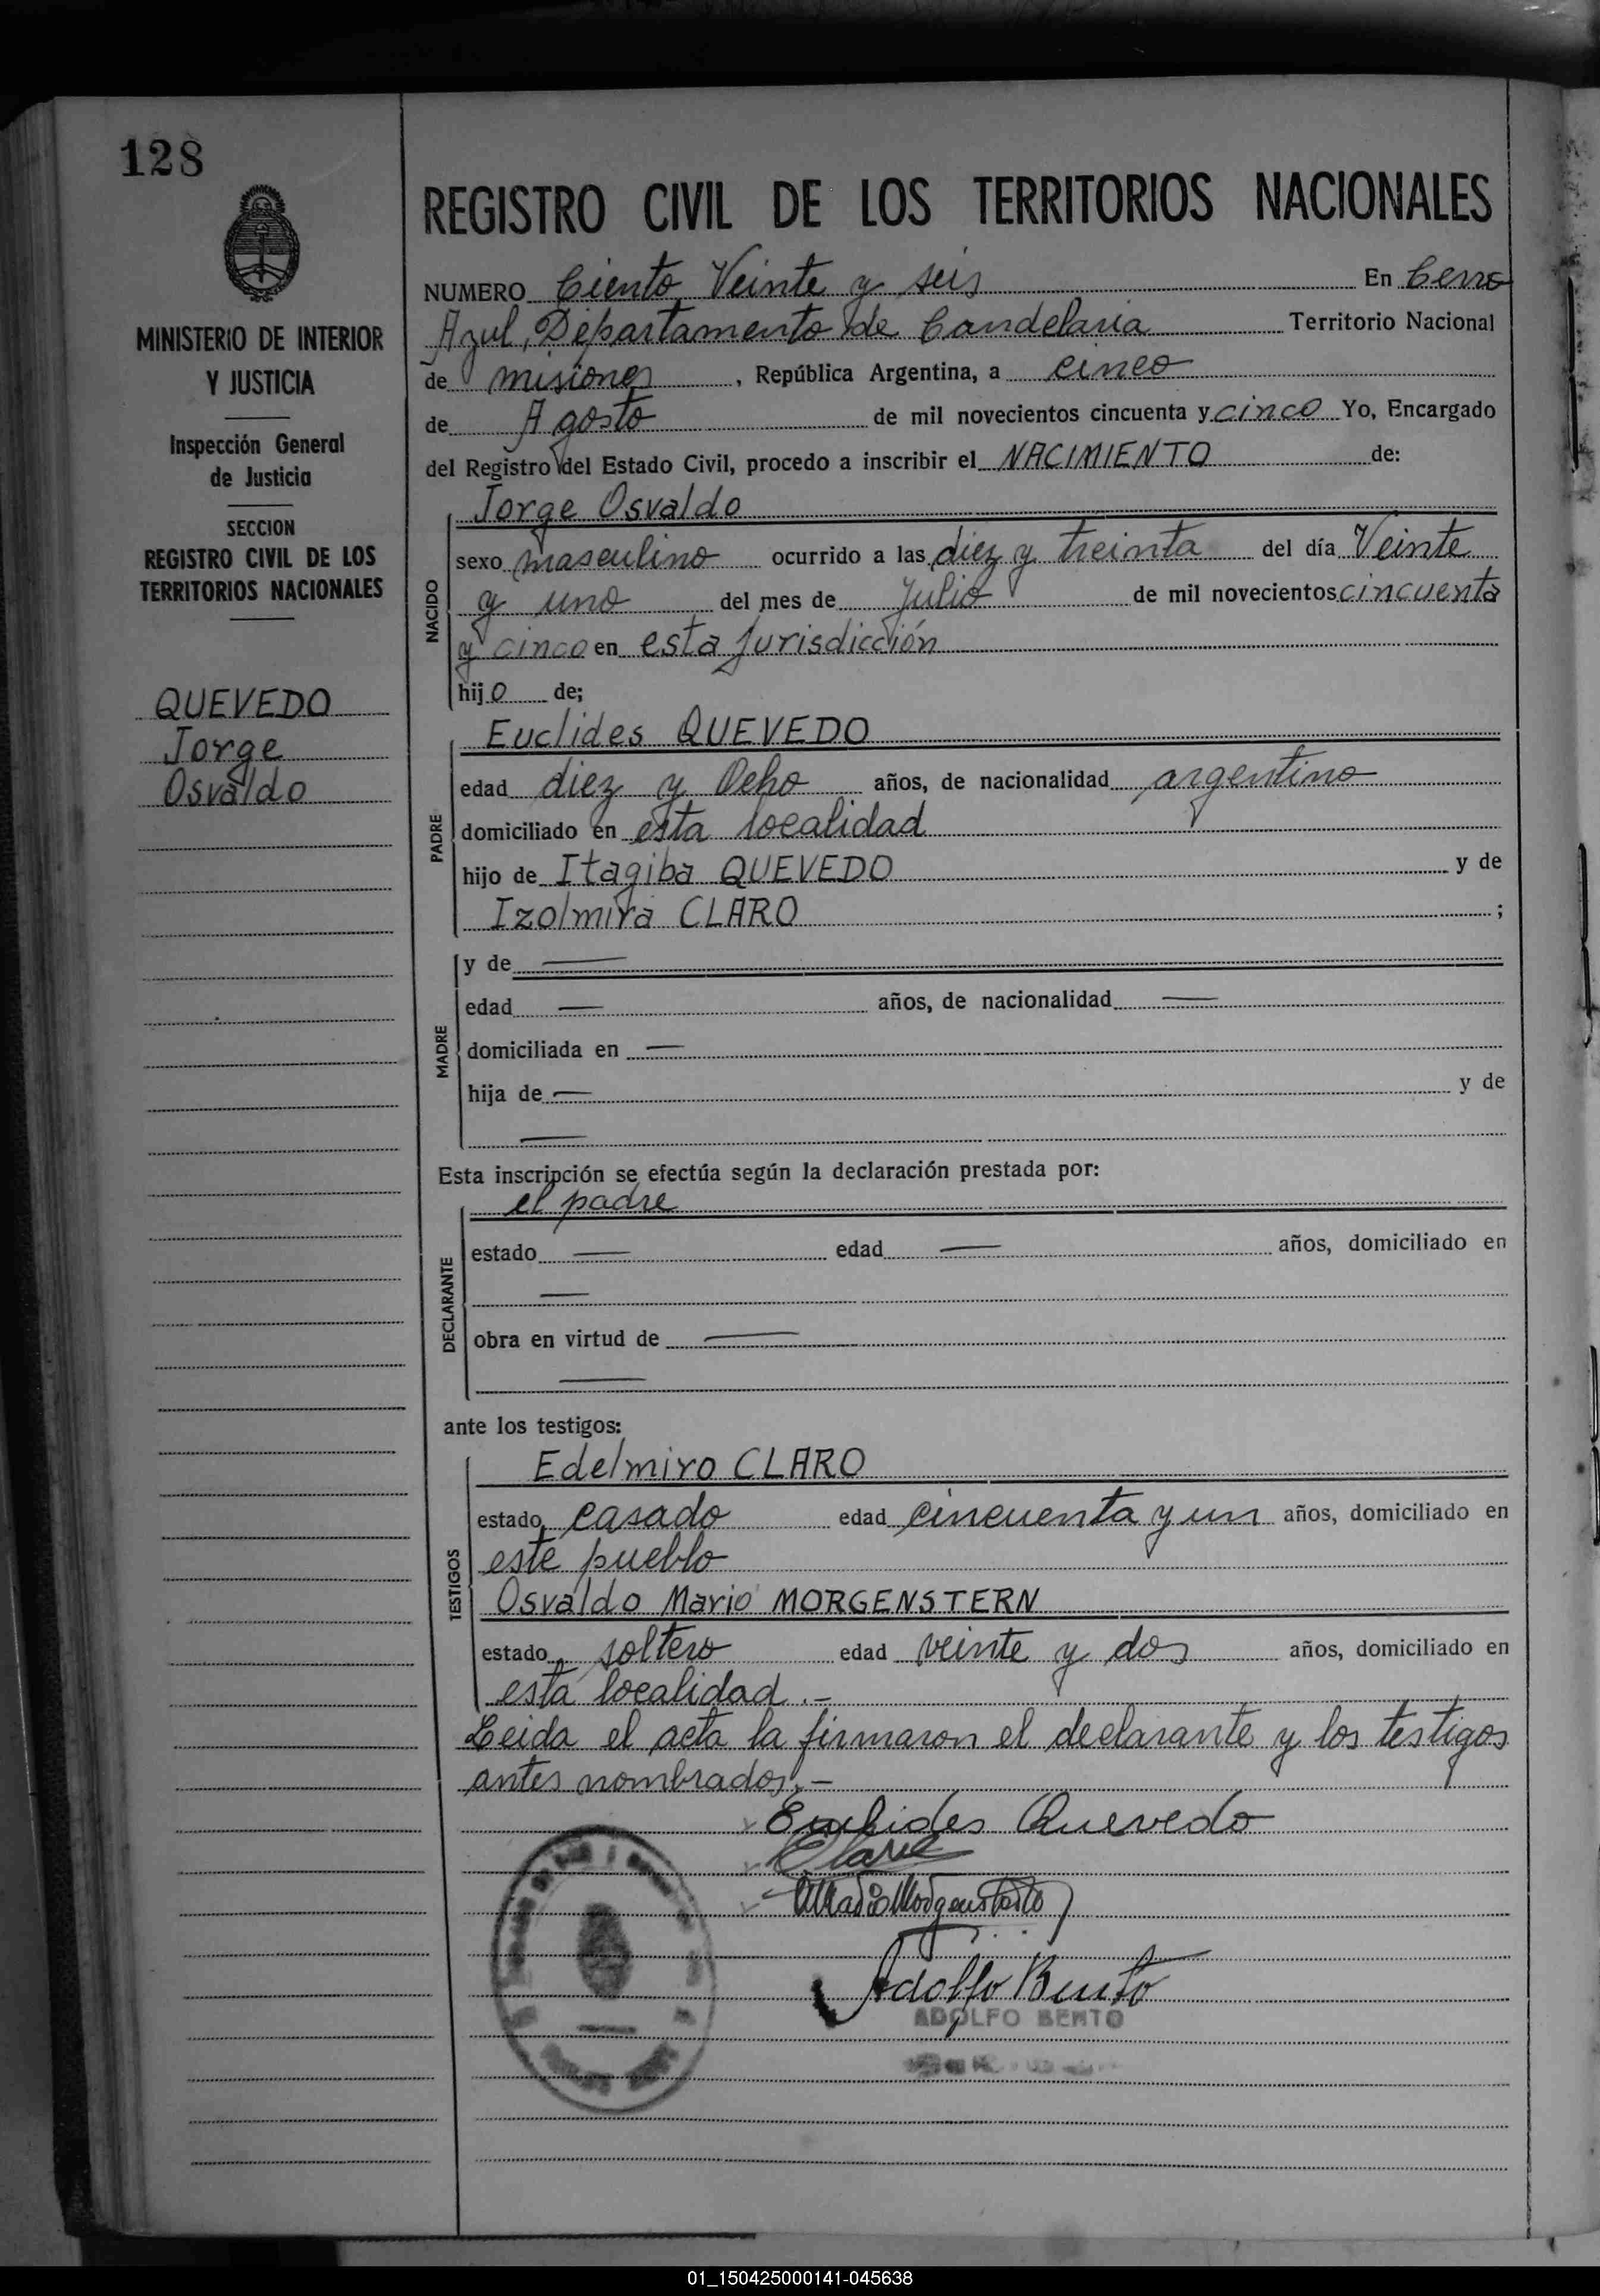 128
MINISTERIO DE INTERIOR
Y JUSTICIA
Inspección General
de Justicia
SECCION
REGISTRO CIVIL DE LOS
TERRITORIOS NACIONALES
QUEVEDO
Jorge
Osvaldo
REGISTRO CIVIL DE LOS TERRITORIOS NACIONALES
NUMERO Ciento Veinte y seis En Cerro
Azul, Departamento de Candelaria Territorio Nacional
de misiones, República Argentina, a cinco
de Agosto de mil novecientos cincuenta y cinco Yo, Encargado
del Registro del Estado Civil, procedo a inscribir el NACIMIENTO de:
Jorge Osvaldo
NACIDO
sexo masculino ocurrido a las diez y treinta del día Veinte
y uno del mes de Julio de mil novecientos cincuenta
y cinco en esta jurisdicción
hijo de;
Euclides QUEVEDO
PADRE
edad diez y Ocho años, de nacionalidad argentino
domiciliado en esta localidad
hijo de Itagiba QUEVEDO y de
Izolmira CLARO ;
MADRE
y de —
edad — años, de nacionalidad —
domiciliada en —
hija de — y de
—
Esta inscripción se efectúa según la declaración prestada por:
el padre
DECLARANTE
estado — edad — años, domiciliado en
—
obra en virtud de —
—
ante los testigos:
Edelmiro CLARO
TESTIGOS
estado casado edad cincuenta y un años, domiciliado en
este pueblo
Osvaldo Mario MORGENSTERN
estado soltero edad veinte y dos años, domiciliado en
esta localidad.-
Leida el acta la firmaron el declarante y los testigos
antes nombrados.-
Euclides Quevedo
Claro
Adolfo Bento
ADOLFO BENTO
01_150425000141-045638